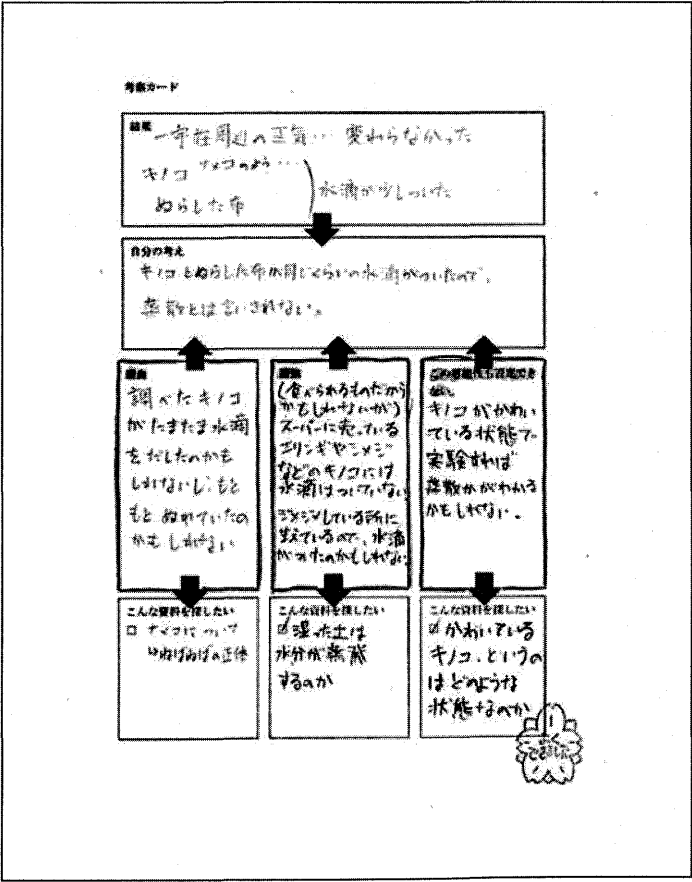 考察カード
結果
変わらなかった
キノコ ナメコのよう…
ぬらした布
水滴が少しついた
自分の考え
キノコとぬらした布が同じくらいの水滴がついたので、
蒸散とは言いきれない。
調べたキノコ
がたまたま水滴
をだしたのかも
しれないし、もと
もとぬれていたの
かもしれない
(食べられるものだから
かもしれないが)
スーパーに売っている
エリンギやシメジ
などのキノコには
水滴はついていない
ジメジメしている所に
生えているので、水滴
がついたのかもしれない
キノコがかわい
ている状態で
実験すれば
蒸散かがわかる
かもしれない。
こんな資料を探したい
□ ナメコについて
ねばねばの正体
こんな資料を探したい
☑ 湿った土は
水分が蒸散
するのか
こんな資料を探したい
☑ かわいている
キノコ、というの
はどのような
状態なのか
できました